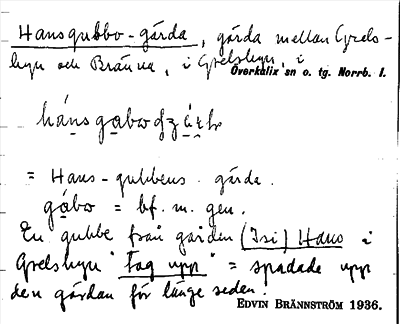 Hansgubbo-gärda, gärda mellan Grels-
byn och Bränna, i Grelsbyn, i
Överkalix sn o. tg. Norrb. l.
= Hans-gubbens gärda.
= bf. m. gen.
En gubbe från gården (Isi) Hans i
Grelsbyn "tog upp" = spadade upp
den gärdan för länge sedan.
EDVIN BRÄNNSTRÖM 1936.